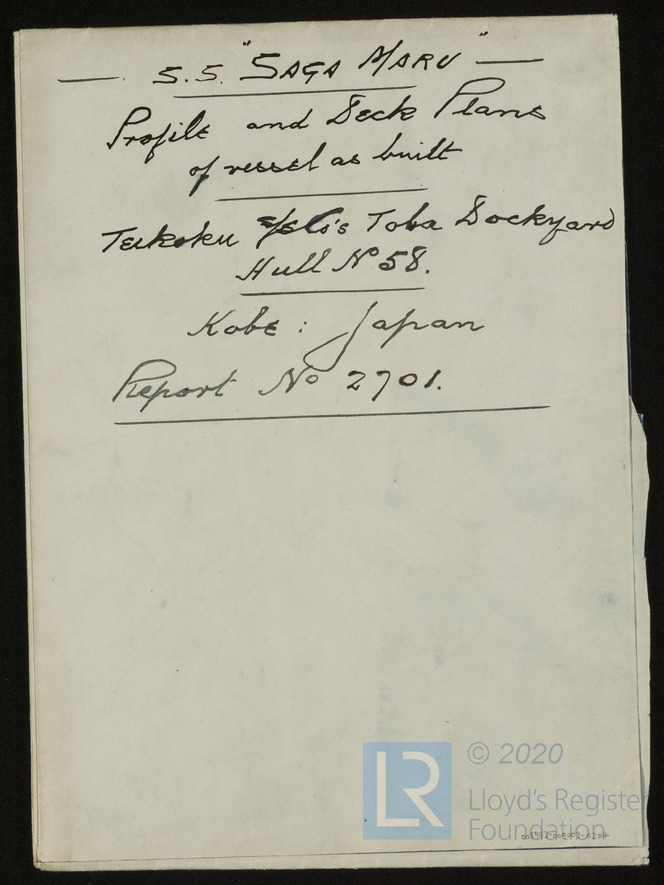 S.S. "SAGA MARU"
Profile and Deck Plans
of vessel as built
Teikoku Co's Toba Dockyard
Hull No 58.
Kobe : Japan
Report No 2701.
LR
© 2020
Lloyd's Register
Foundation